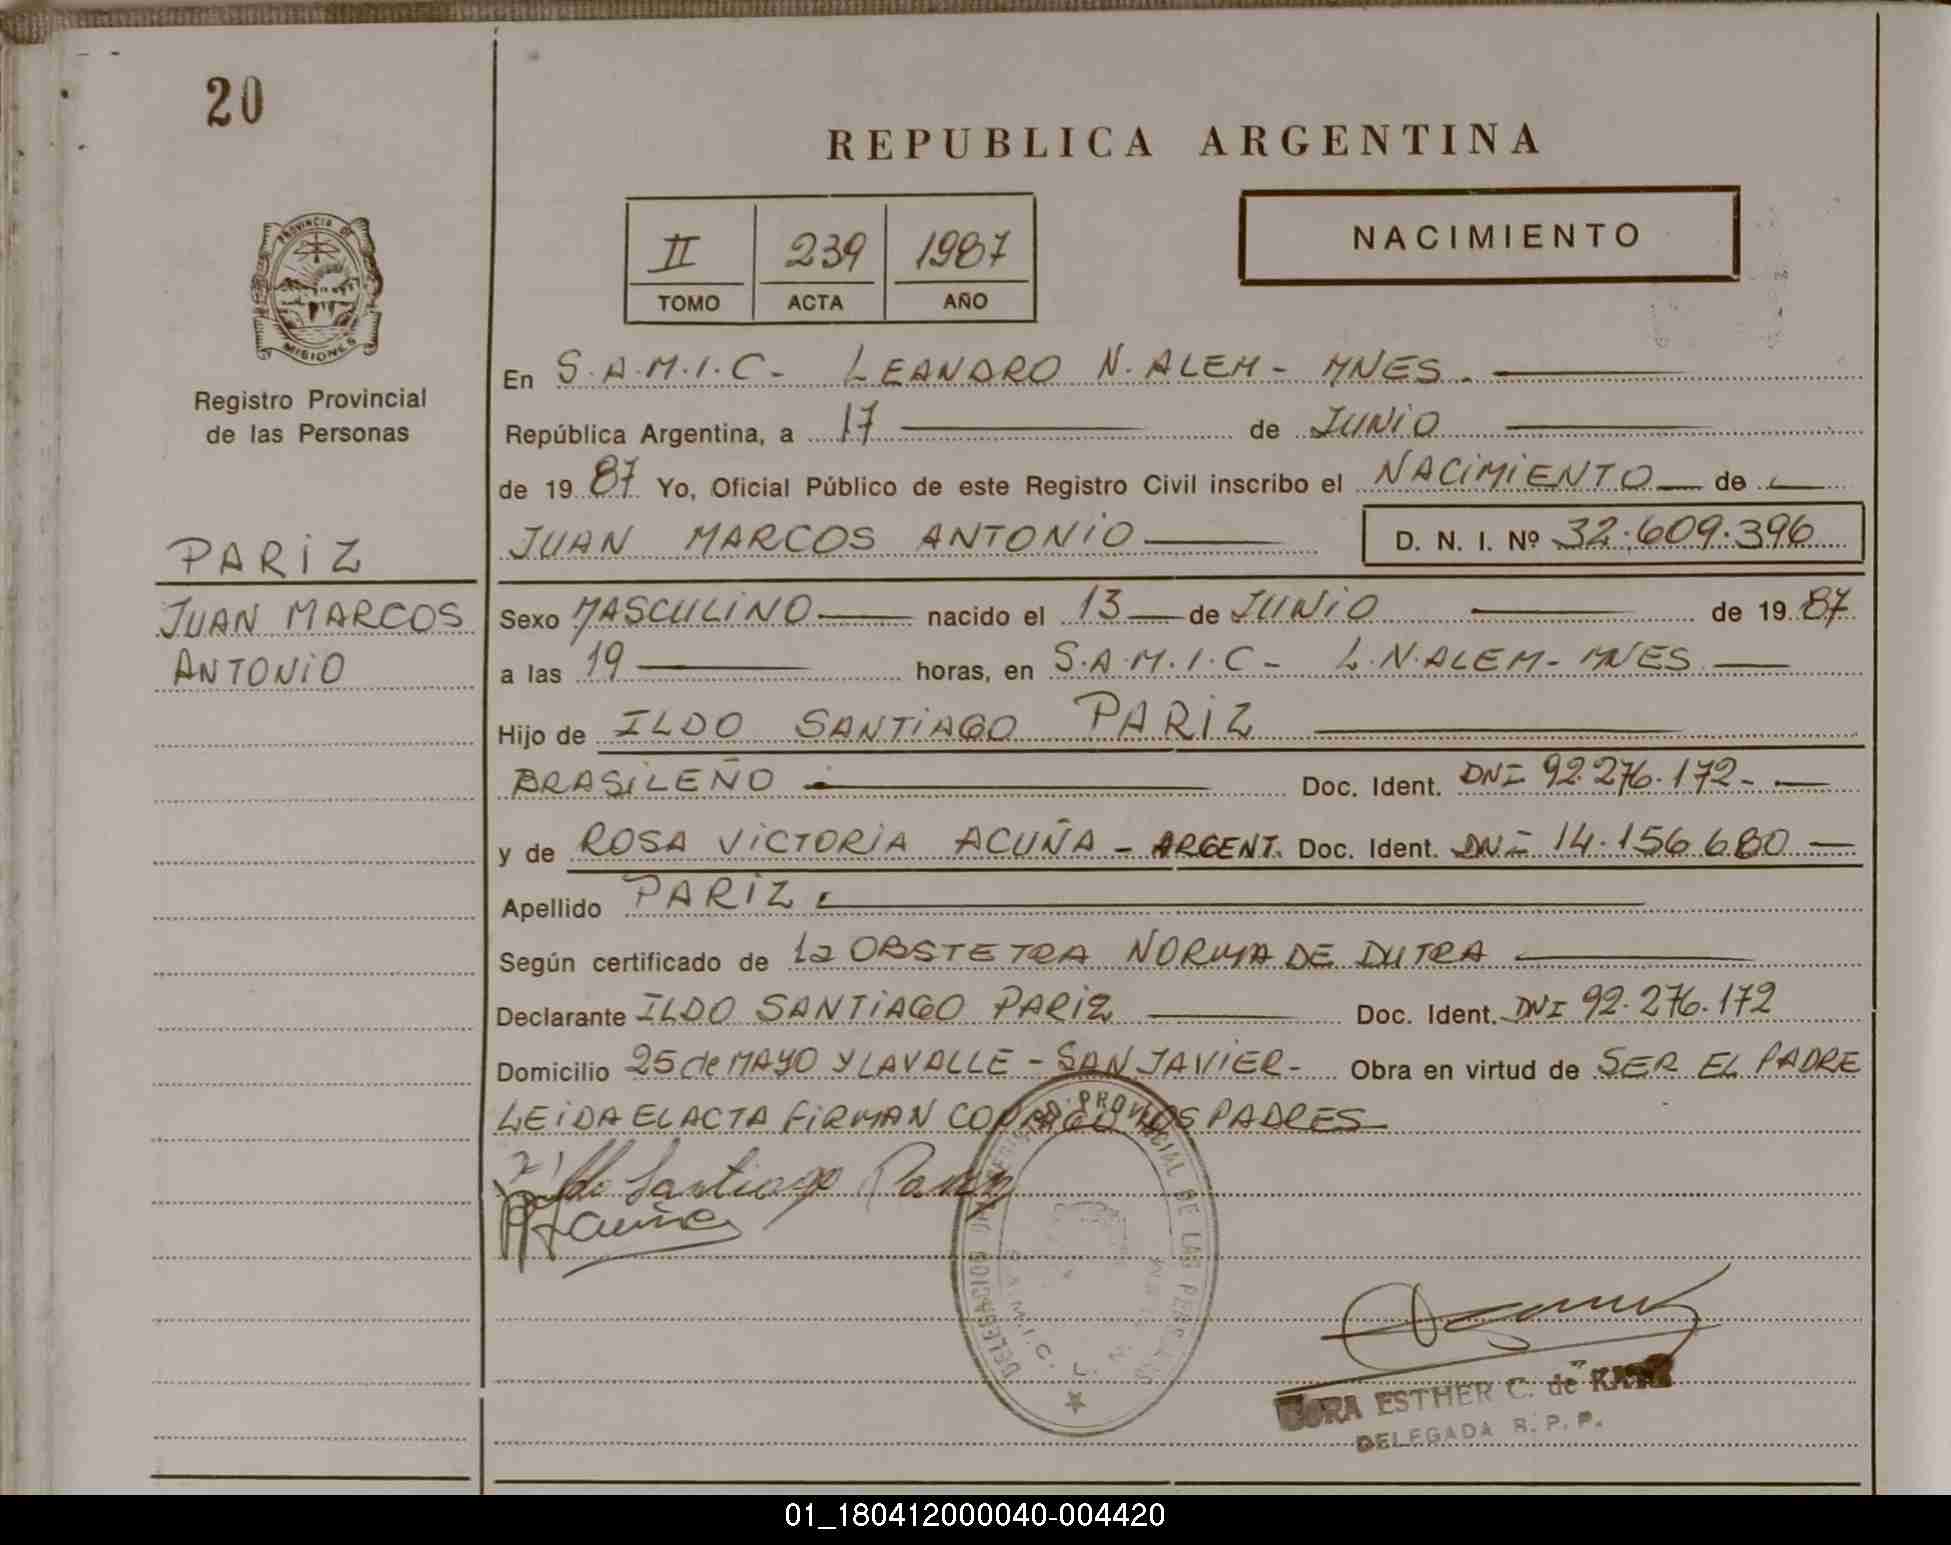 20
REPUBLICA ARGENTINA
II 239 1987
TOMO ACTA AÑO
NACIMIENTO
PROVINCIA DE
MISIONES
Registro Provincial
de las Personas
PARIZ
JUAN MARCOS
ANTONIO
En S.A.M.I.C- LEANDRO N. ALEM - MNES.
República Argentina, a 17 de JUNIO
de 19 87 Yo, Oficial Público de este Registro Civil inscribo el NACIMIENTO de
JUAN MARCOS ANTONIO D. N. I. Nº 32.609.396
Sexo MASCULINO nacido el 13 de JUNIO de 19 87
a las 19 horas, en S.A.M.I.C- L.N.ALEM- MNES
Hijo de ILDO SANTIAGO PARIZ
BRASILEÑO Doc. Ident. DNI 92.276.172-
y de ROSA VICTORIA ACUÑA - ARGENT. Doc. Ident. DNI 14.156.680
Apellido PARIZ
Según certificado de la OBSTETRA NORMA DE DUTRA
Declarante ILDO SANTIAGO PARIZ Doc. Ident. DNI 92.276.172
Domicilio 25 de MAYO Y LAVALLE - SAN JAVIER - Obra en virtud de SER EL PADRE
LEIDA EL ACTA FIRMAN CONMIGO LOS PADRES
Ildo Santiago Pariz
Acuña
PROVINCIAL DE LAS
S.A.M.I.C. L. N.
ESTHER C. de KATZ
DELEGADA R. P. P.
01_180412000040-004420